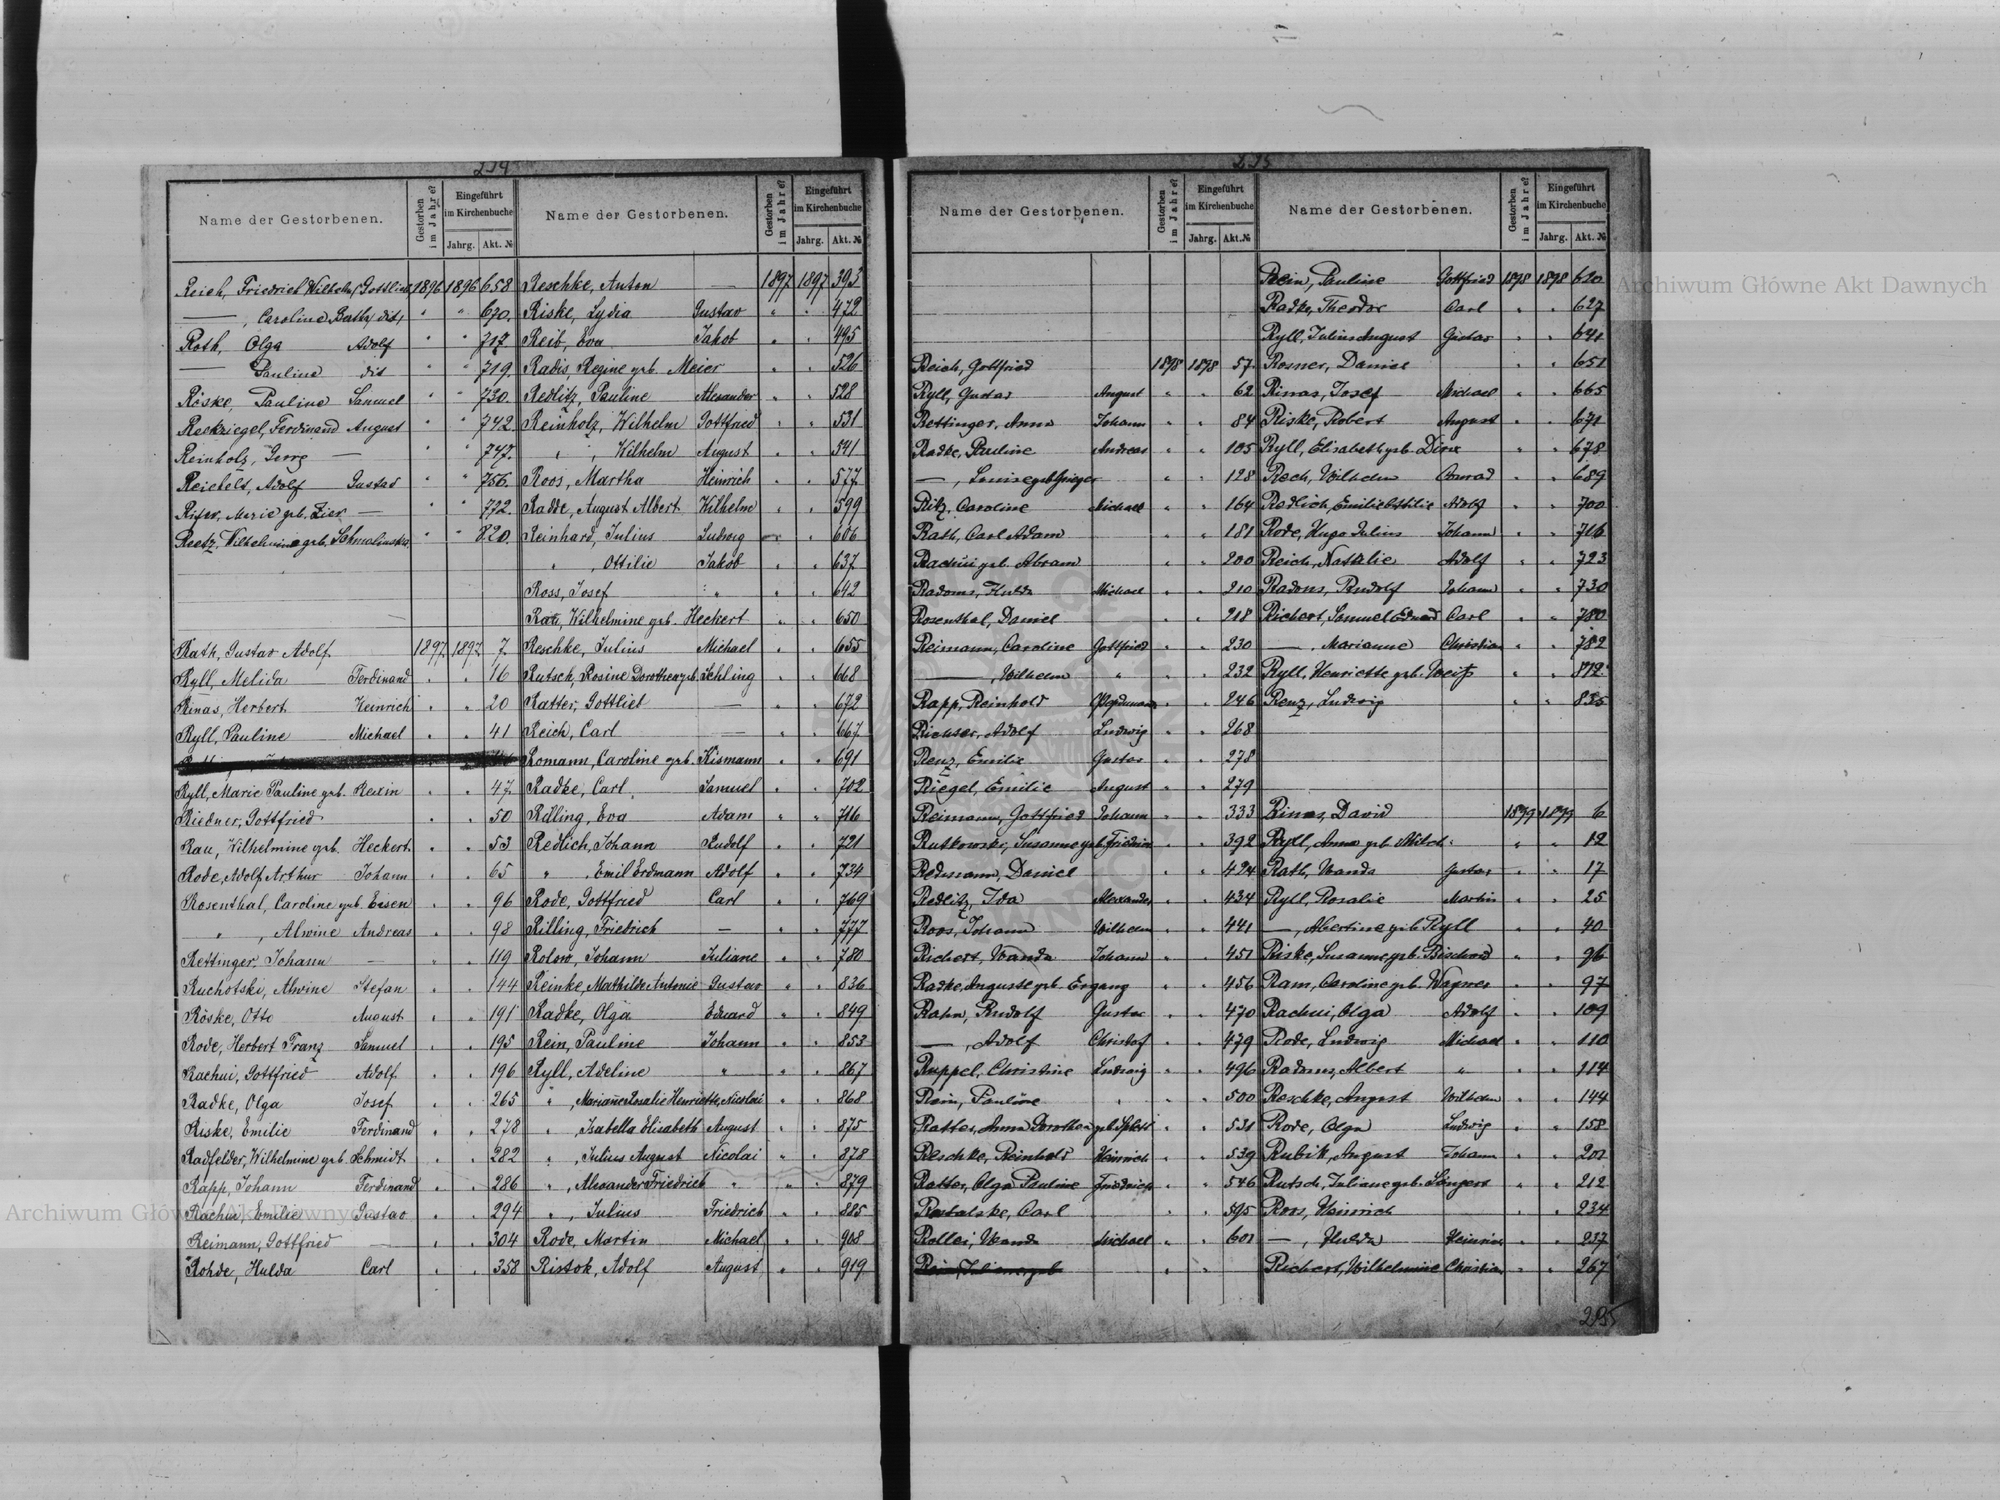 294
Name der Gestorbenen. Gestorben im Jahre? Eingeführt im Kirchenbuche Jahrg. Akt. № Name der Gestorbenen. Gestorben im Jahre? Eingeführt im Kirchenbuche Jahrg. Akt. №
Reich, Friedrich Wilhelm Gottlieb 1896 1896 658
———, Caroline dit " " 670.
Roth, Olga Adolf " " 717
——— Pauline dit " " 719
Röske, Pauline Samuel " " 730
Reckziegel, Ferdinand August " " 742
Reinholz, Georg — " " 747.
Reichelt, Adolf Gustav " " 756.
Marie geb. Zier — " " 772.
Reetz, Wilhelmine geb. " " 820.
Rath, Gustav Adolf 1897 1897 7.
Ryll, Melida Ferdinand " " 16
Rinas, Herbert Heinrich " " 20
Ryll, Pauline Michael " " 41
Ryll, Marie Pauline geb. Rexin " " 47
Riedner, Gottfried " " 50
Rau, Wilhelmine geb. Heckert " " 53
Rode, Adolf Arthur Johann " " 65
Rosenthal, Caroline geb. Eisen " " 96
" , Alwine Andreas " " 98
Rettinger, Johann — " " 119
Ruchotski, Alwine Stefan " " 144
Röske, Otto August " " 191
Rode, Herbert Franz Samuel " " 195
Rachui, Gottfried Adolf " " 196
Radke, Olga Josef " " 265
Riske, Emilie Ferdinand " " 278
Radfelder, Wilhelmine geb. Schmidt " " 282
Rapp, Johann Ferdinand " " 286
Rachui, Emilie Gustav " " 294
Reimann, Gottfried — " " 304
Rohde, Hulda Carl " " 358
Reschke, Anton — 1897 1897 393
Riske, Lydia Gustav " " 472
Reib, Eva Jakob " " 495
Radis, Regine geb. Meier " " 526
Redlitz, Pauline Alexander " " 528
Reinholz, Wilhelm Gottfried " " 531
" , Wilhelm August " " 541
Roos, Martha Heinrich " " 577
Radde, August Albert Wilhelm " " 599
Reinhard, Julius Ludwig " " 606
" , Ottilie Jakob " " 637
Ross, Josef " " " 642
Rau, Wilhelmine geb. Heckert " " 650
Reschke, Julius Michael " " 655
Rutsch, Rosine Dorothea geb. Schling " " 668
Ratter, Gottlieb — " " 672
Reich, Carl — " " 667
Romann, Caroline geb. Kismann " " 691
Radke, Carl Samuel " " 702
Rilling, Eva Adam " " 716
Redlich, Johann Rudolf " " 721
" , Emil Erdmann Adolf " " 734
Rode, Gottfried Carl " " 769
Rilling, Friedrich — " " 777
Rolow, Johann Juliane " " 780
Reinke, Mathilde Antonie Gustav " " 836
Radke, Olga Eduard " " 849
Rein, Pauline Johann " " 853
Ryll, Adeline " " " 867
" , Marianne Rosalie Henriette, Nicolai " " 868
" , Isabella Elisabeth August " " 875
" , Julius August Nicolai " " 878
" , Alexander Friedrich " " " 879
" , Julius Friedrich " " 885
Rode, Martin Michael " " 908
Ristok, Adolf August " " 919
295
Name der Gestorbenen. Gestorben im Jahre? Eingeführt im Kirchenbuche Jahrg. Akt. № Name der Gestorbenen. Gestorben im Jahre? Eingeführt im Kirchenbuche Jahrg. Akt. №
Reich, Gottfried 1898 1898 57
Ryll, Gustav August " " 62
Rettinger, Anna Johann " " 84
Radke, Pauline Andreas " " 105
———, Louise geb. " " 128
Ritz, Caroline Michael " " 164
Rath, Carl Adam " " 181
Rachui geb. Abram " " 200
Radoms, Hulda Michael " " 210
Rosenthal, Daniel " " 218
Reimann, Caroline Gottfried " " 230
———, Wilhelm " " " 232
Rapp, Reinhold " " 246
Richter, Adolf Ludwig " " 268
Renz, Emilie Gustav " " 278
Riegel, Emilie August " " 279
Reimann, Gottfried Johann " " 333
Rutkowski, Susanne geb. " " 392
Redmann, Daniel " " 424
Redlitz, Ida Alexander " " 434
Roos, Johann Wilhelm " " 441
Richert, Wanda Johann " " 451
Radke, Auguste geb. Ergang " " 456
Rahn, Rudolf Gustav " " 470
———, Adolf Christof " " 479
Ruppel, Christine Ludwig " " 496
Rein, Pauline " " " 500
Ratter, Anna Dorothea geb. " " 531
Reschke, Reinhold Heinrich " " 539
Ratter, Olga Pauline Friedrich " " 546
Ratalske, Carl " " 595
Rollei, Wanda Michael " " 601
Rein, Pauline Gottfried 1898 1898 620
Radke, Theodor Carl " " 627
Ryll, Julius August Gustav " " 641
Rosner, Daniel " " 651
Rinas, Josef Michael " " 665
Riske, Robert August " " 671
Ryll, Elisabeth geb. " " 678
Rech, Wilhelm Conrad " " 689
Redlich, Emilie Adolf " " 700
Rode, Hugo Julius Johann " " 716
Reich, Nathalie Adolf " " 723
Radoms, Rudolf Johann " " 730
Richert, Samuel Eduard Carl " " 780
———, Marianne Christian " " 782
Ryll, Henriette geb. Weiß " " 812
Renz, Ludwig " " 835
Rinas, David 1899 1899 6
Ryll, Anna geb. " " 12
Rath, Wanda Gustav " " 17
Ryll, Rosalie Martin " " 25
———, Albertine geb. Ryll " " 40
Riske, Susanne geb. " " 96
Ram, Caroline geb. Wagner " " 97
Rachui, Olga Adolf " " 109
Rode, Ludwig Michael " " 110
Radoms, Albert " " " 114
Reschke, August Wilhelm " " 144
Rode, Olga Ludwig " " 158
Rubik, August Johann " " 201
Rutsch, Juliane geb. " " 212
Roos, Heinrich " " 234
———, Hulda Heinrich " " 237
Richert, Wilhelmine Christian " " 267
295
Archiwum Główne Akt Dawnych
Archiwum Główne Akt Dawnych